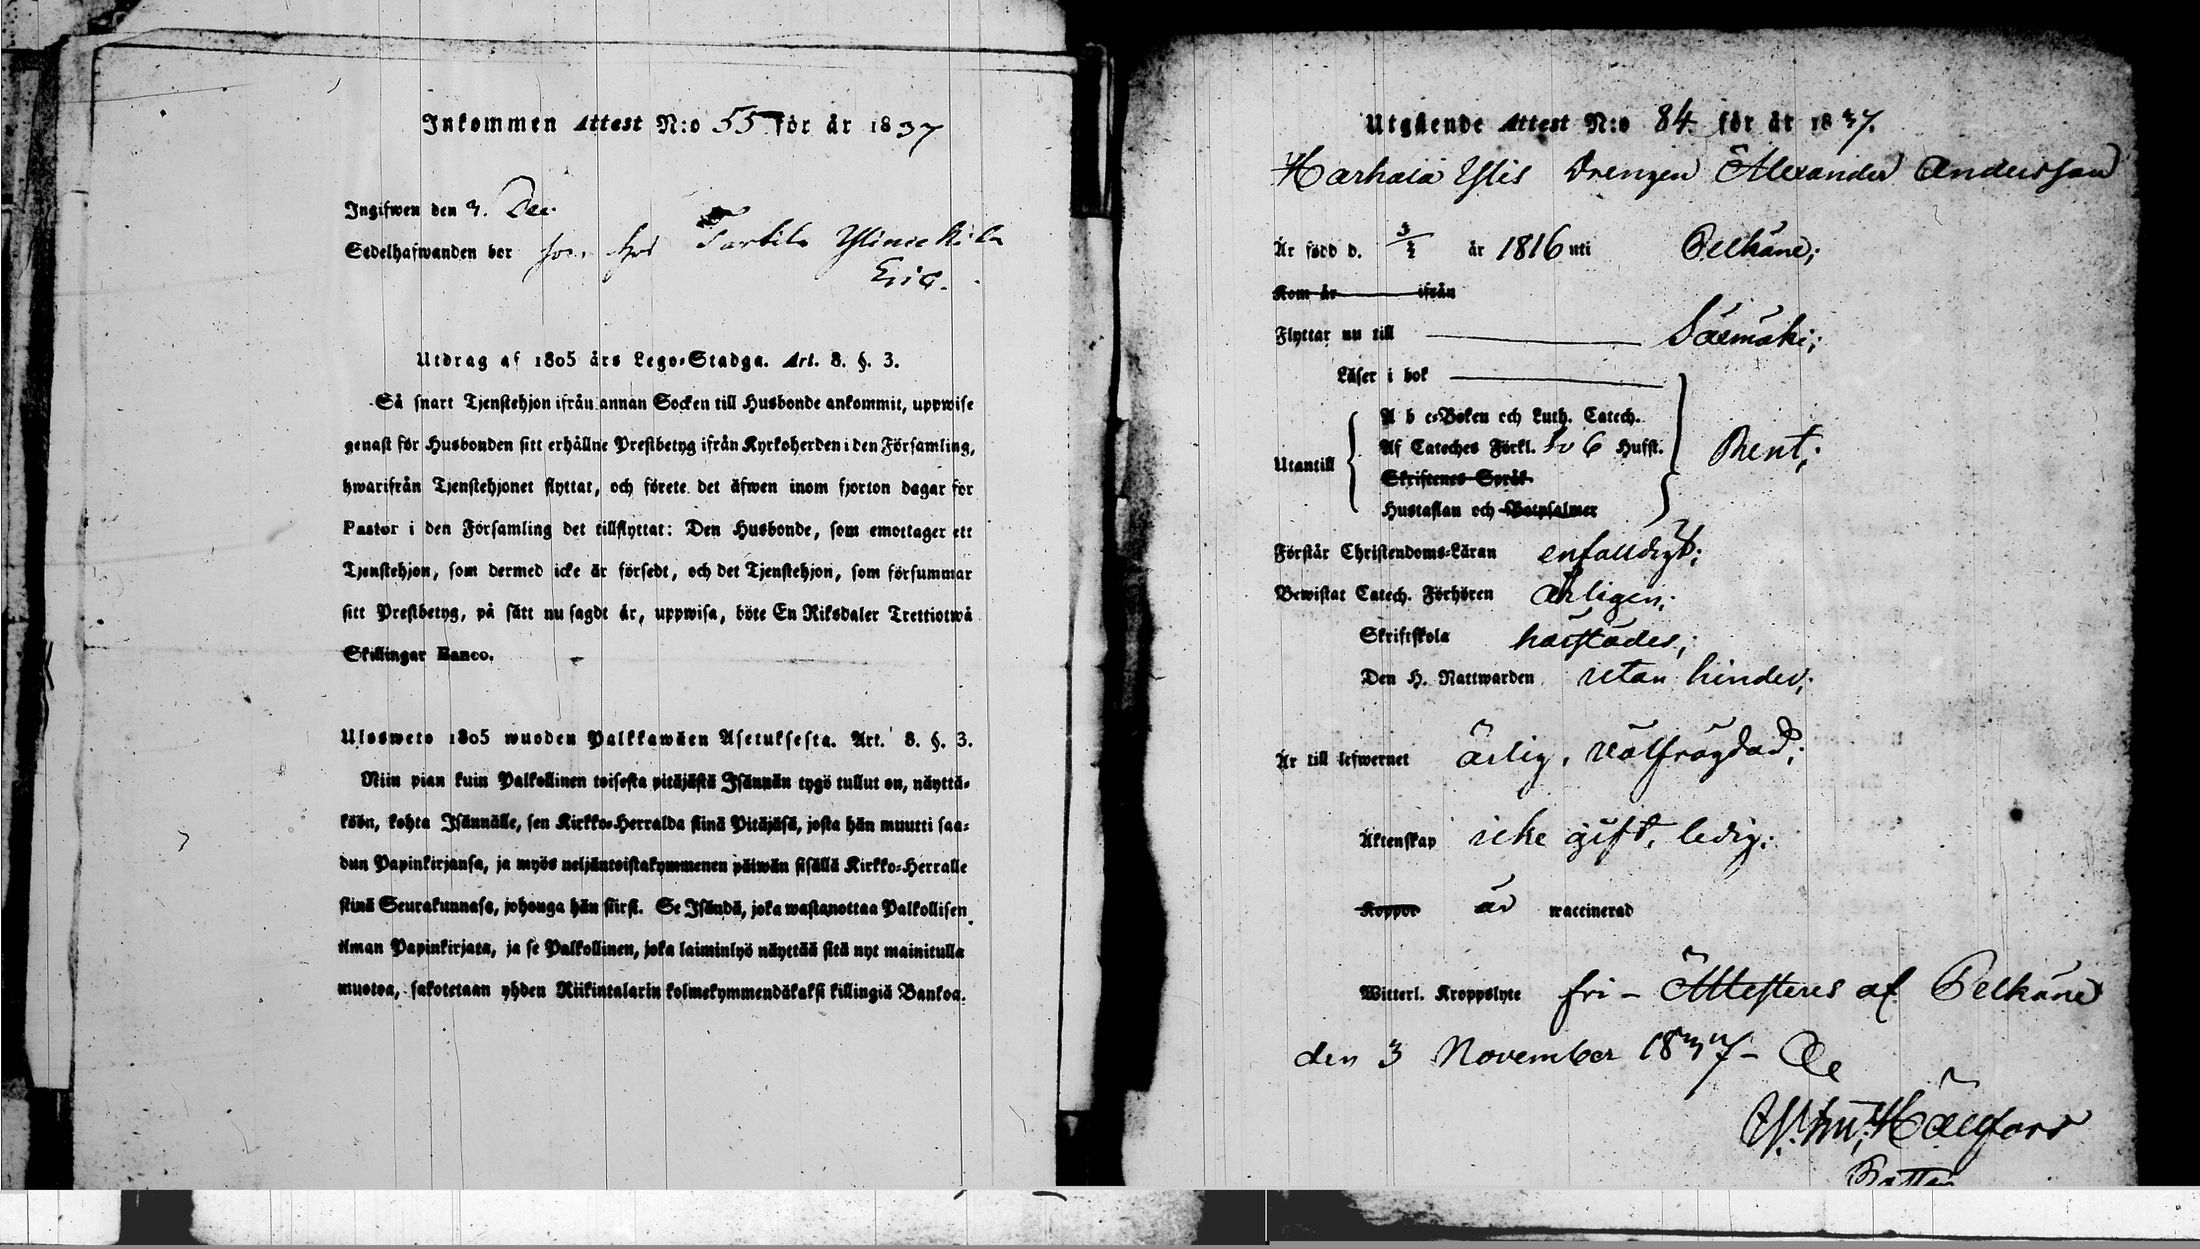 Inkommen Attest N:o 55 för år 1837
Ingifwen den 3. Dec.
Sedelhafwanden bor hos
Eric.
Utdrag af 1805 års Lego-Stadga. Art. 8. §. 3.
Så snart Tjenstehjon ifrån annan Socken till Husbonde ankommit, uppwise
genast för Husbonden sitt erhållne Prestbetyg ifrån Kyrkoherden i den Församling,
hwarifrån Tjenstehjonet flyttat, och förete det äfwen inom fjorton dagar för
Pastor i den Församling det tillflyttat: Den Husbonde, som emottager ett
Tjenstehjon, som dermed icke är försedt, och det Tjenstehjon, som försummar
sitt Prestbetyg, på sätt nu sagdt är, uppwisa, böte En Riksdaler Trettiotwå
Skillingar Banco.
Ulosweto 1805 wuoden Palkkawäen Asetuksesta. Art. 8. §. 3.
Niin pian kuin Palkollinen toisesta pitäjästä Isännän tygö tullut on, näyttä-
köön, kohta Isännälle, sen Kirkko-Herralda siinä Pitäjäsä, josta hän muutti saa-
dun Papinkirjansa, ja myös neljäntoistakymmenen päiwän sisällä Kirkko-Herralle
siinä Seurakunnasa, johonga hän siirsi. Se Isändä, joka wastanottaa Palkollisen
ilman Papinkirjata, ja se Palkollinen, joka laiminlyö näyttää sitä nyt mainitulla
muotoa, sakotetaan yhden Riikintalarin kolmekymmendäkaksi killingiä Bankoa.
Utgående Attest N:o 84 för år 1837.
Harhala Ylis Drengen Alexander Andersson
Är född d. 3/2 år 1816 uti Pelkäne;
Kom år ifrån
Flyttar nu till Säxmäki;
Läser i bok
A b c-Boken och Luth. Catech.
Af Cateches Förkl. 6 Hufst.
Utantill Rent;
Skriftenes Språk
Hustaflan och Botpsalmer
Förstår Christendoms-Läran enfalldigt;
Bewistat Catech. Förhören årligen;
Skriftskola härstädes;
Den H. Nattwarden utan hinder;
Är till lefwernet ärlig, välfrägdad;
Äktenskap icke gift, ledig;
Koppor är waccinerad
Witterl. Kroppslyte fri – Attesteres af Pelkäne
den 3 November 1837 –